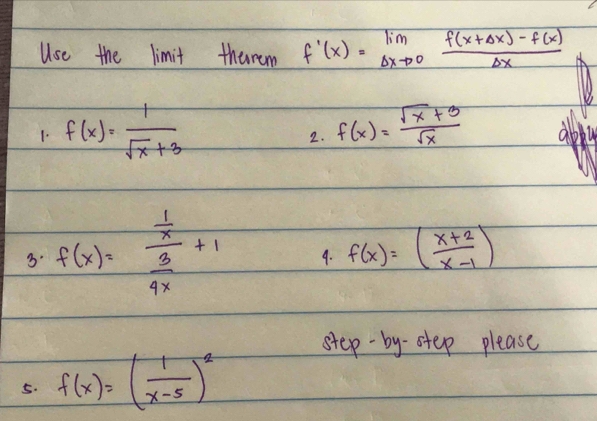 Use the limit theorem f'(x) = lim Δx→0 f(x+Δx) - f(x) / Δx
apply
1. f(x) = 1 / √x + 3
2. f(x) = √x + 3 / √x
3. f(x) = 1/x / 3/4x + 1
4. f(x) = (x+2 / x-1)
step-by-step please
5. f(x) = (1 / x-5)²